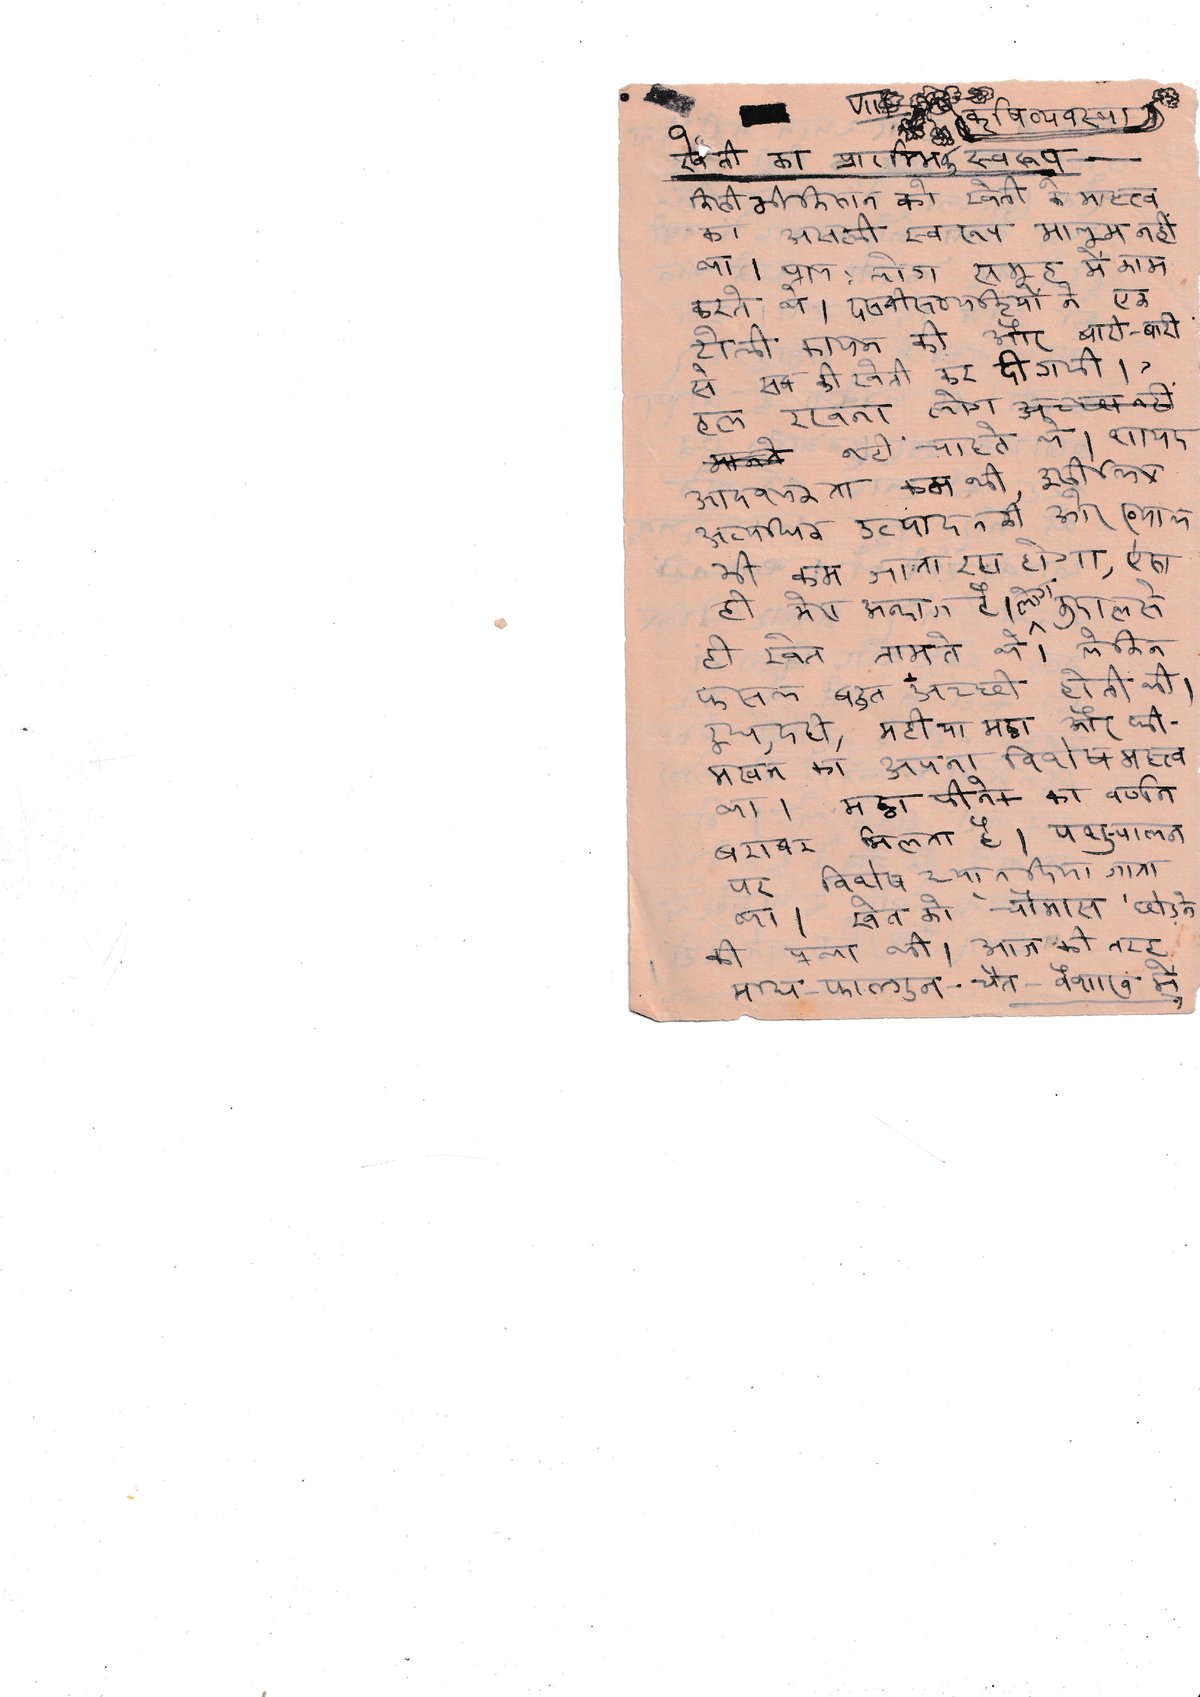 VII कृषि व्यवस्था
१
खेती का प्रारम्भिक स्वरूप —
किसी भी किसान को खेती के महत्व
का असली स्वरूप मालूम नहीं
था। प्रायः लोग समूह में काम
करते थे। दसबीस आदमियों ने एक
टोली कायम की और बारी-बारी
से सब की खेती कर दी गयी।
हल रखना लोग अच्छा नहीं
मानते नहीं चाहते थे। शायद
आवश्यकता कम थी, इसीलिए
अत्यधिक उत्पादन की ओर ध्यान
भी कम जाता रहा होगा, ऐसा
ही मेरा अन्दाज है। लोग कुदाल से
ही खेत तामते थे। लेकिन
फसल बहुत अच्छी होती थी।
दूध, दही, मही या मठ्ठा और घी-
मखन का अपना विशेष महत्व
था। मठ्ठा पीने का वर्णन
बराबर मिलता है। पशु-पालन
पर विशेष ध्यान दिया जाता
था। खेत को चौमास छोड़ने
की प्रथा थी। आज की तरह
माघ-फाल्गुन-चैत-वैशाख में,